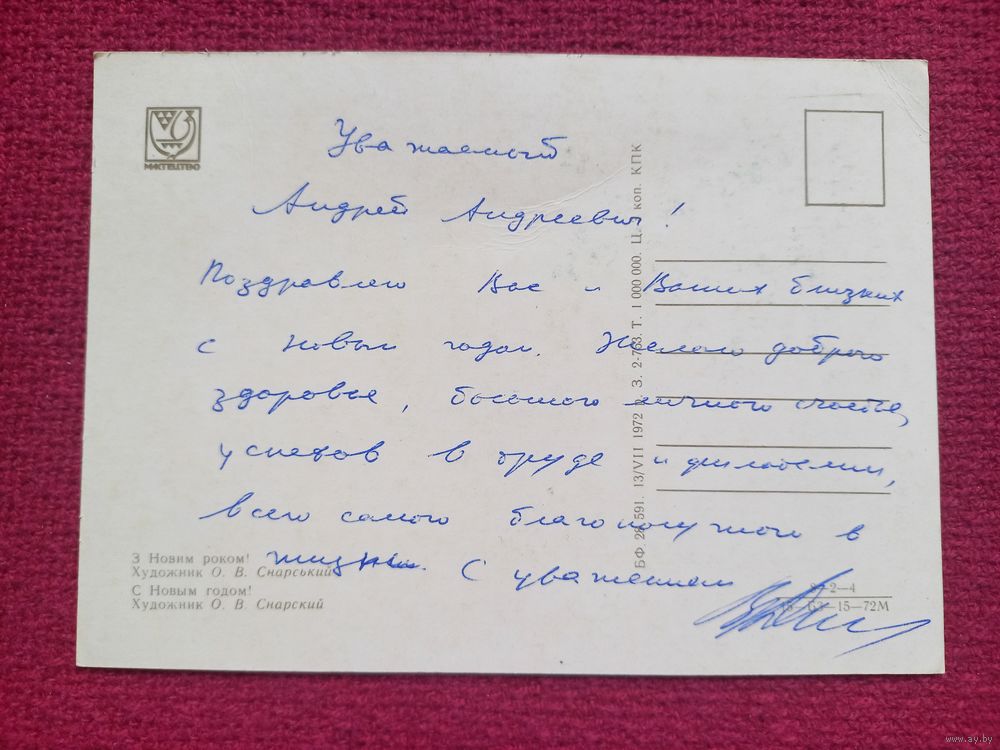 МИСТЕЦТВО
Уважаемый
Андрей Андреевич!
Поздравляю Вас и Ваших близких
с новым годом. Желаю доброго
здоровья, большого личного счастья,
успехов в труде и филателии,
всего самого благополучного в
жизни. С уважением
З Новим роком!
Художник О. В. Снарський
С Новым годом!
Художник О. В. Снарский
БФ 13/VII 1972 З. Т. 1 000 000. Ц. коп. КПК
2—4
15—72М
www.ay.by